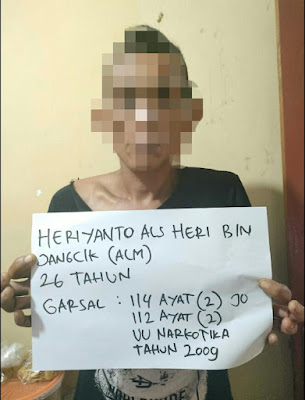 HERIYANTO ALS HERI BIN
JANGCIK (ALM)
26 TAHUN
GARSAL : 114 AYAT (2) JO
112 AYAT (2)
UU NARKOTIKA
TAHUN 2009